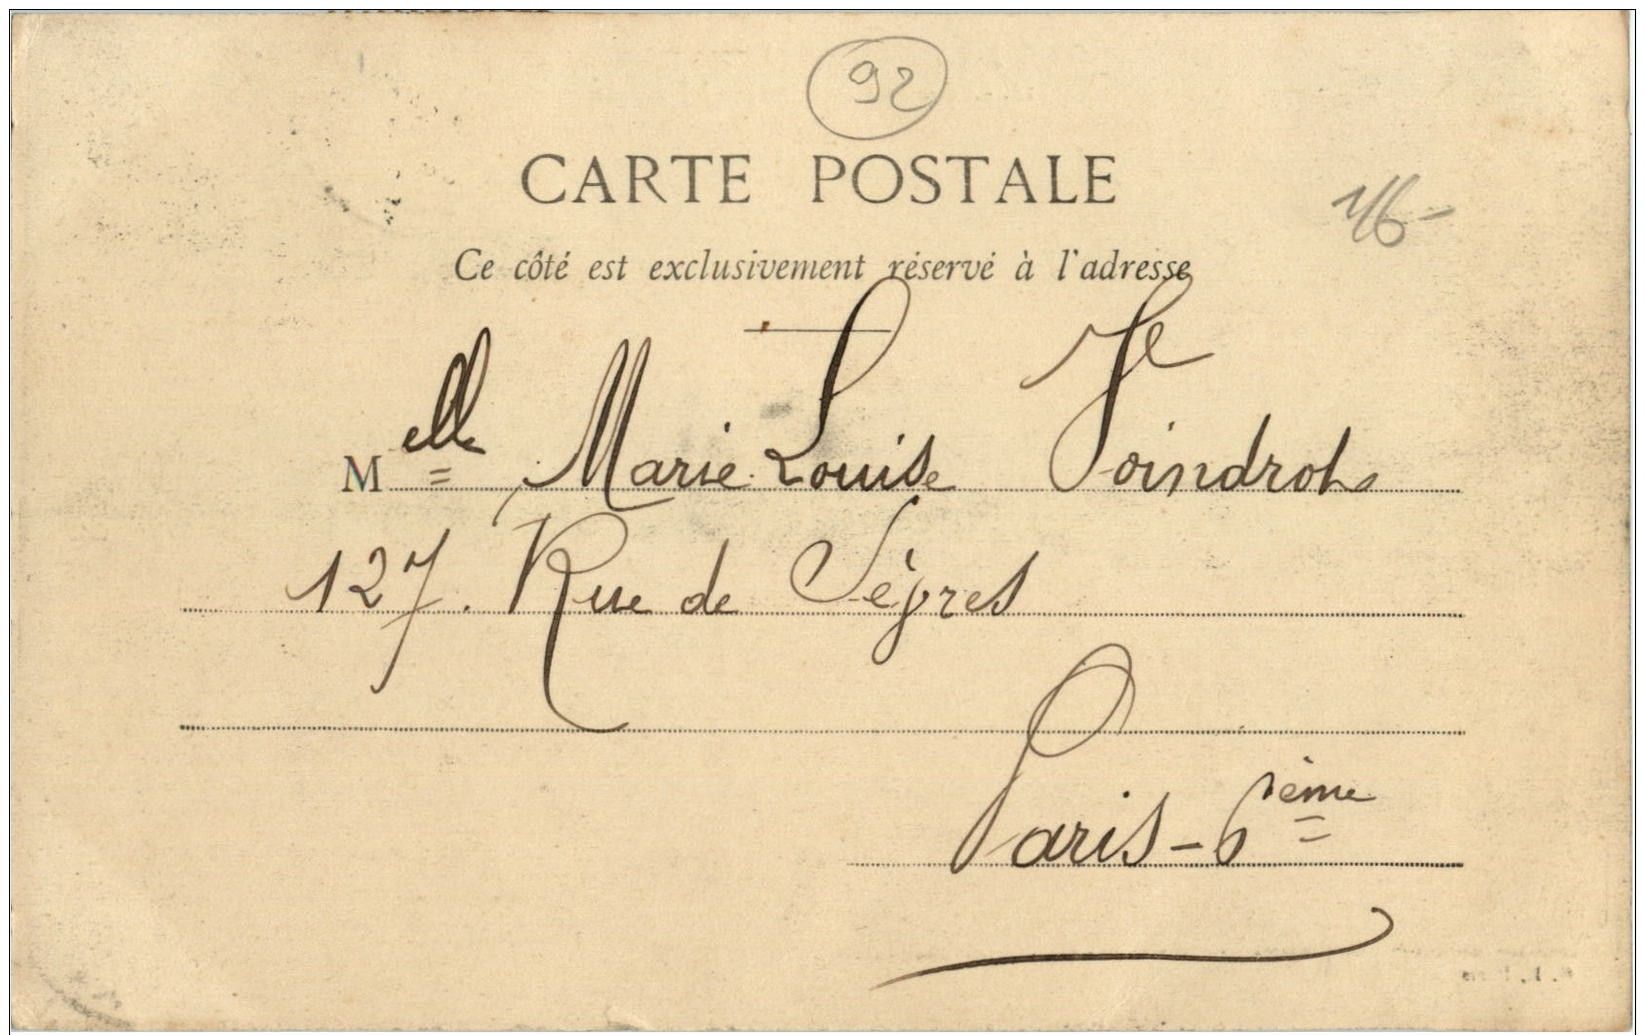 92
CARTE POSTALE
Ce côté est exclusivement réservé à l'adresse
Melle Marie Louise
127. Rue de Sèvres
Paris - 6ième